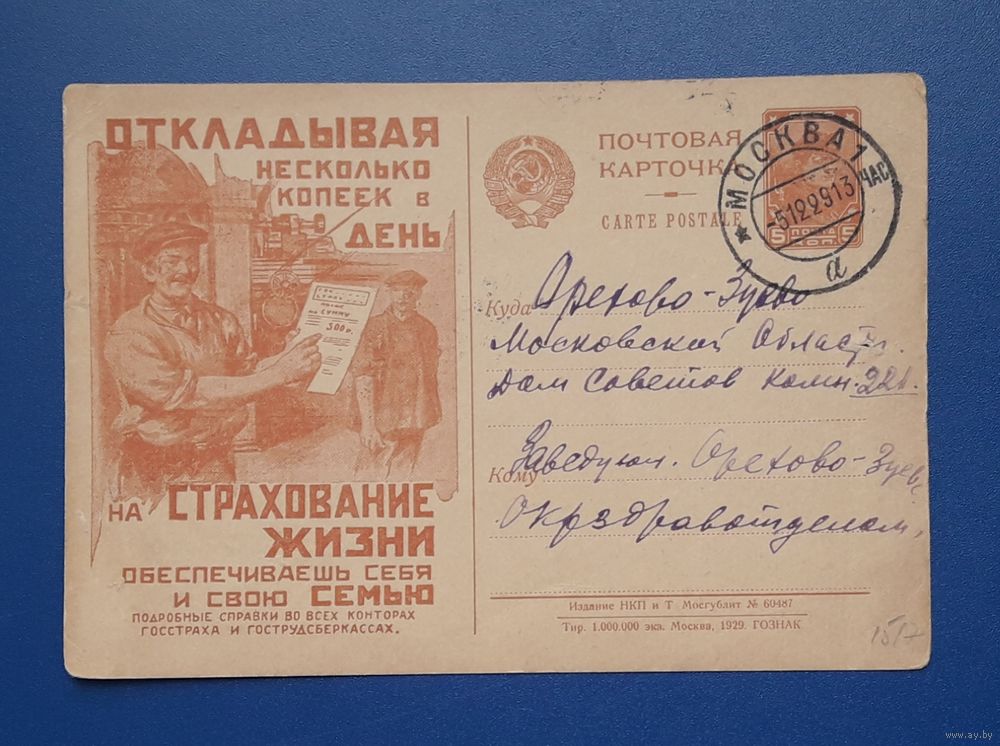 ОТКЛАДЫВАЯ
НЕСКОЛЬКО
КОПЕЕК В
ДЕНЬ
СУММУ
500 р.
НА СТРАХОВАНИЕ
ЖИЗНИ
ОБЕСПЕЧИВАЕШЬ СЕБЯ
И СВОЮ СЕМЬЮ
ПОДРОБНЫЕ СПРАВКИ ВО ВСЕХ КОНТОРАХ
ГОССТРАХА И ГОСТРУДСБЕРКАССАХ.
ПОЧТОВАЯ
КАРТОЧКА
CARTE POSTALE
МОСКВА 1
ЧАС
-5122913
а
5 ПОЧТА 5
КОП.
Куда Орехово-Зуево
Московской Области.
Дом Советов комн. 221.
Кому Заведующ. Орехово-Зуев.
Окрздравотделом,
Издание НКП и Т Мосгублит № 60487
Тир. 1.000.000 экз. Москва, 1929. ГОЗНАК
1517
www.ay.by